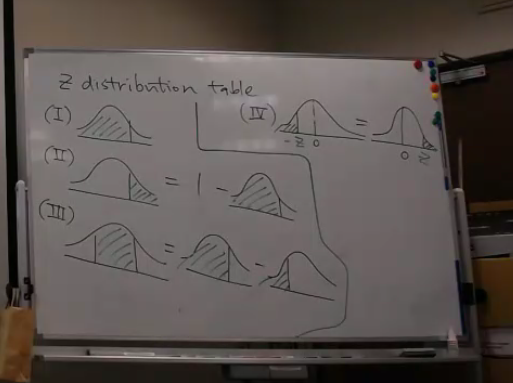 Z distribution table
(I)
(II) = 1 -
(III) = -
(IV) =
-z 0 0 z